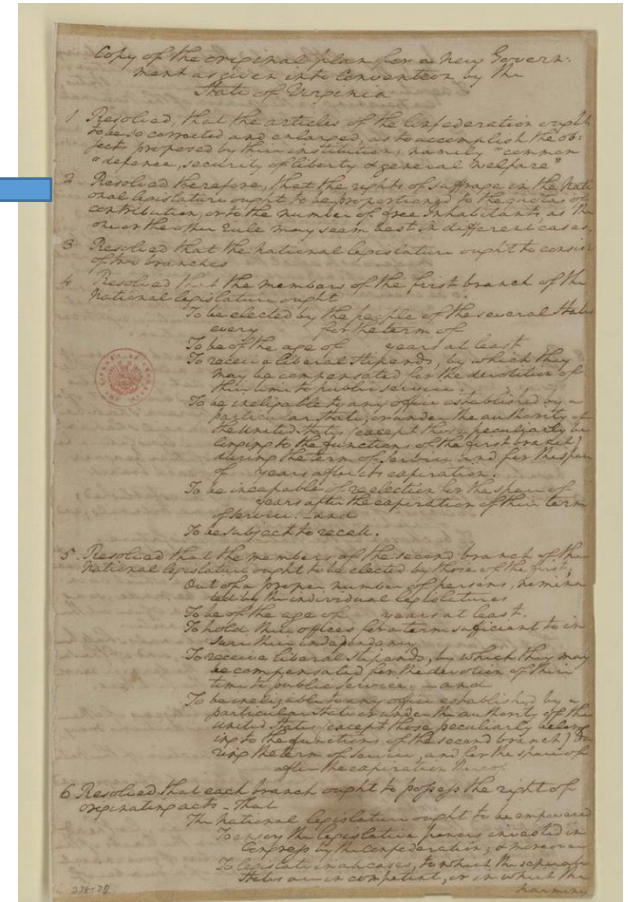 Copy of the original plan for a new Govern:
ment as given into Convention by the
State of Virginia
1 Resolved, that the articles of the Confederation ought
to be so corrected and enlarged, as to accomplish the ob-
jects proposed by their institution, namely common
"defence, security of liberty & general welfare"
2. Resolved therefore, that the rights of suffrage in the Nati
onal legislature ought to be proportioned to the quotas of
contribution, or to the number of free inhabitants, as the
one or the other rule may seem best in different cases.
3 Resolved that the national legislature ought to consist
of two branches
4 Resolved that the members of the first branch of the
national legislature ought
To be elected by the people of the several States
every for the term of
To be of the age of years at least
To receive liberal stipends, by which they
may be compensated for the devotion of
their time to public service.
To be ineligible to any office established by a
particular State, or under the authority of
the united States (except those peculiarly be
longing to the functions of the first branch)
during the term of service and for the space
of years after its expiration.
To be incapable of reelection for the space of
years after the expiration of their term
of service. and
To be subject to recall.
5. Resolved that the members of the second branch of the
national legislature ought to be elected by those of the first,
Out of a proper number of persons, nomina
ted by the individual legislatures
To be of the age of years at least.
To hold their offices for a term sufficient to in
sure their independency
To receive liberal stipends, by which they may
be compensated for the devotion of their
time to public service. and
To be ineligible to any office established by a
particular State or under the authority of the
united States (except those peculiarly belong
ing to the functions of the second branch) du
ring the term of service, and for the space of
after the expiration thereof
6 Resolved that each branch ought to possess the right of
originating acts - that
The national legislature ought to be empowered
To enjoy the legislative powers invested in
Congress by the Confederation; & moreover
To legislate in all cases, to which the separate
States are incompetent, or in which the
harmony